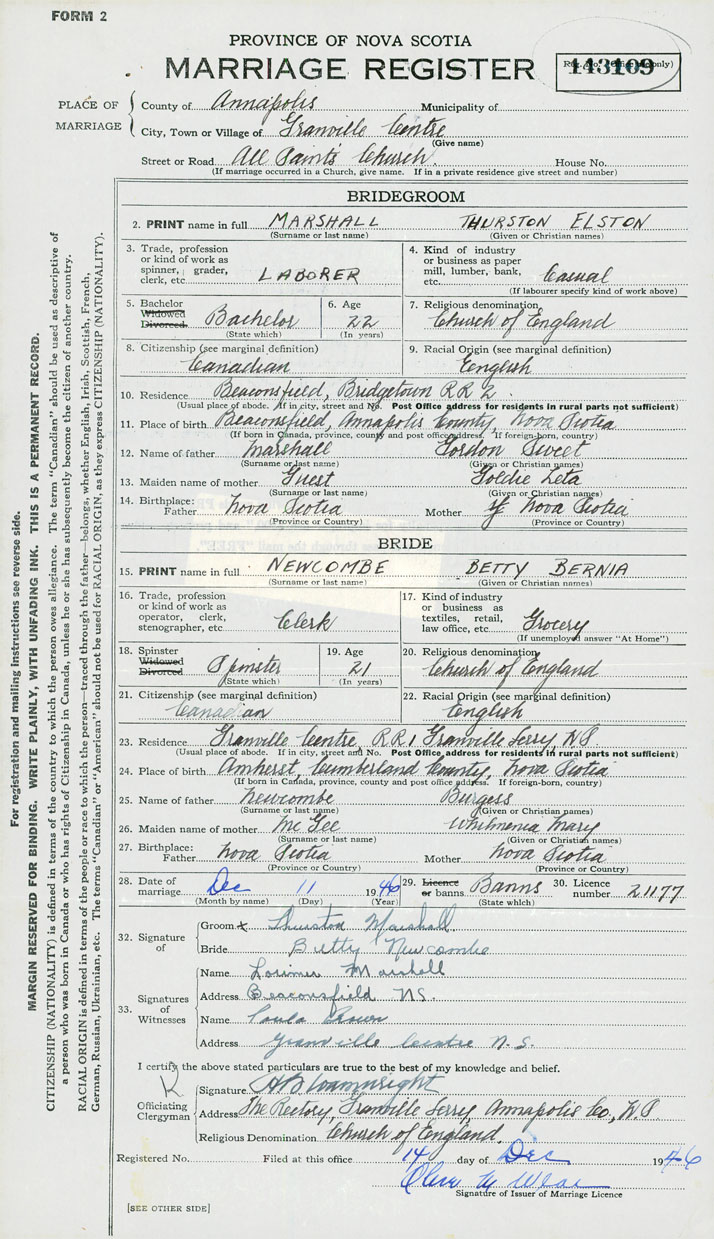 FORM 2
PROVINCE OF NOVA SCOTIA
MARRIAGE REGISTER
143109
PLACE OF MARRIAGE
County of Annapolis Municipality of
City, Town or Village of Granville Centre
(Give name)
Street or Road All Saints Church. House No.
(If marriage occurred in a Church, give name. If in a private residence give street and number)
BRIDEGROOM
2. PRINT name in full MARSHALL THURSTON ELSTON
(Surname or last name) (Given or Christian names)
3. Trade, profession or kind of work as spinner, grader, clerk, etc. LABORER
4. Kind of industry or business as paper mill, lumber, bank, etc. Casual
(If labourer specify kind of work above)
5. Bachelor Widowed Divorced. Bachelor
(State which)
6. Age 22
(In years)
7. Religious denomination Church of England
8. Citizenship (see marginal definition) Canadian
9. Racial Origin (see marginal definition) English
10. Residence Beaconsfield, Bridgetown RR 2.
(Usual place of abode. If in city, street and No. Post Office address for residents in rural parts not sufficient)
11. Place of birth Beaconsfield, Annapolis County, Nova Scotia
(If born in Canada, province, county and post office address. If foreign-born, country)
12. Name of father Marshall Gordon Sweet
(Surname or last name) (Given or Christian names)
13. Maiden name of mother Guest Goldie Leta
(Surname or last name) (Given or Christian names)
14. Birthplace: Father Nova Scotia Mother Nova Scotia
(Province or Country) (Province or Country)
BRIDE
15. PRINT name in full NEWCOMBE BETTY BERNIA
(Surname or last name) (Given or Christian names)
16. Trade, profession or kind of work as operator, clerk, stenographer, etc. Clerk
17. Kind of industry or business as textiles, retail, law office, etc. Grocery
(If unemployed answer "At Home")
18. Spinster Widowed Divorced Spinster
(State which)
19. Age 21
(In years)
20. Religious denomination Church of England
21. Citizenship (see marginal definition) Canadian
22. Racial Origin (see marginal definition) English
23. Residence Granville Centre, RR1 Granville Ferry, N.S
(Usual place of abode. If in city, street and No. Post Office address for residents in rural parts not sufficient)
24. Place of birth Amherst, Cumberland County, Nova Scotia
(If born in Canada, province, county and post office address. If foreign-born, country)
25. Name of father Newcombe Burgess
(Surname or last name) (Given or Christian names)
26. Maiden name of mother McGee Whilmenia Mary
(Surname or last name) (Given or Christian names)
27. Birthplace: Father Nova Scotia Mother Nova Scotia
(Province or Country) (Province or Country)
28. Date of marriage Dec 11 1946
(Month by name) (Day) (Year)
29. Licence or banns Banns
(State which)
30. Licence number 21177
32. Signature of
Groom x Thurston Marshall
Bride Betty Newcombe
33. Signatures of Witnesses
Name Lorimer Marshall
Address Beaconsfield NS.
Name Paula
Address Granville Centre N.S.
I certify the above stated particulars are true to the best of my knowledge and belief.
Officiating Clergyman
Signature
Address The Rectory, Granville Ferry Annapolis Co, N.S
Religious Denomination Church of England.
Registered No. Filed at this office 14 day of Dec 1946
Signature of Issuer of Marriage Licence
[SEE OTHER SIDE]
For registration and mailing instructions see reverse side.
MARGIN RESERVED FOR BINDING. WRITE PLAINLY, WITH UNFADING INK. THIS IS A PERMANENT RECORD.
CITIZENSHIP (NATIONALITY) is defined in terms of the country to which the person owes allegiance. The term "Canadian" should be used as descriptive of
a person who was born in Canada or who has rights of Citizenship in Canada, unless he or she has subsequently become the citizen of another country.
RACIAL ORIGIN is defined in terms of the people or race to which the person—traced through the father—belongs, whether English, Irish, Scottish, French,
German, Russian, Ukrainian, etc. The terms "Canadian" or "American" should not be used for RACIAL ORIGIN, as they express CITIZENSHIP (NATIONALITY).